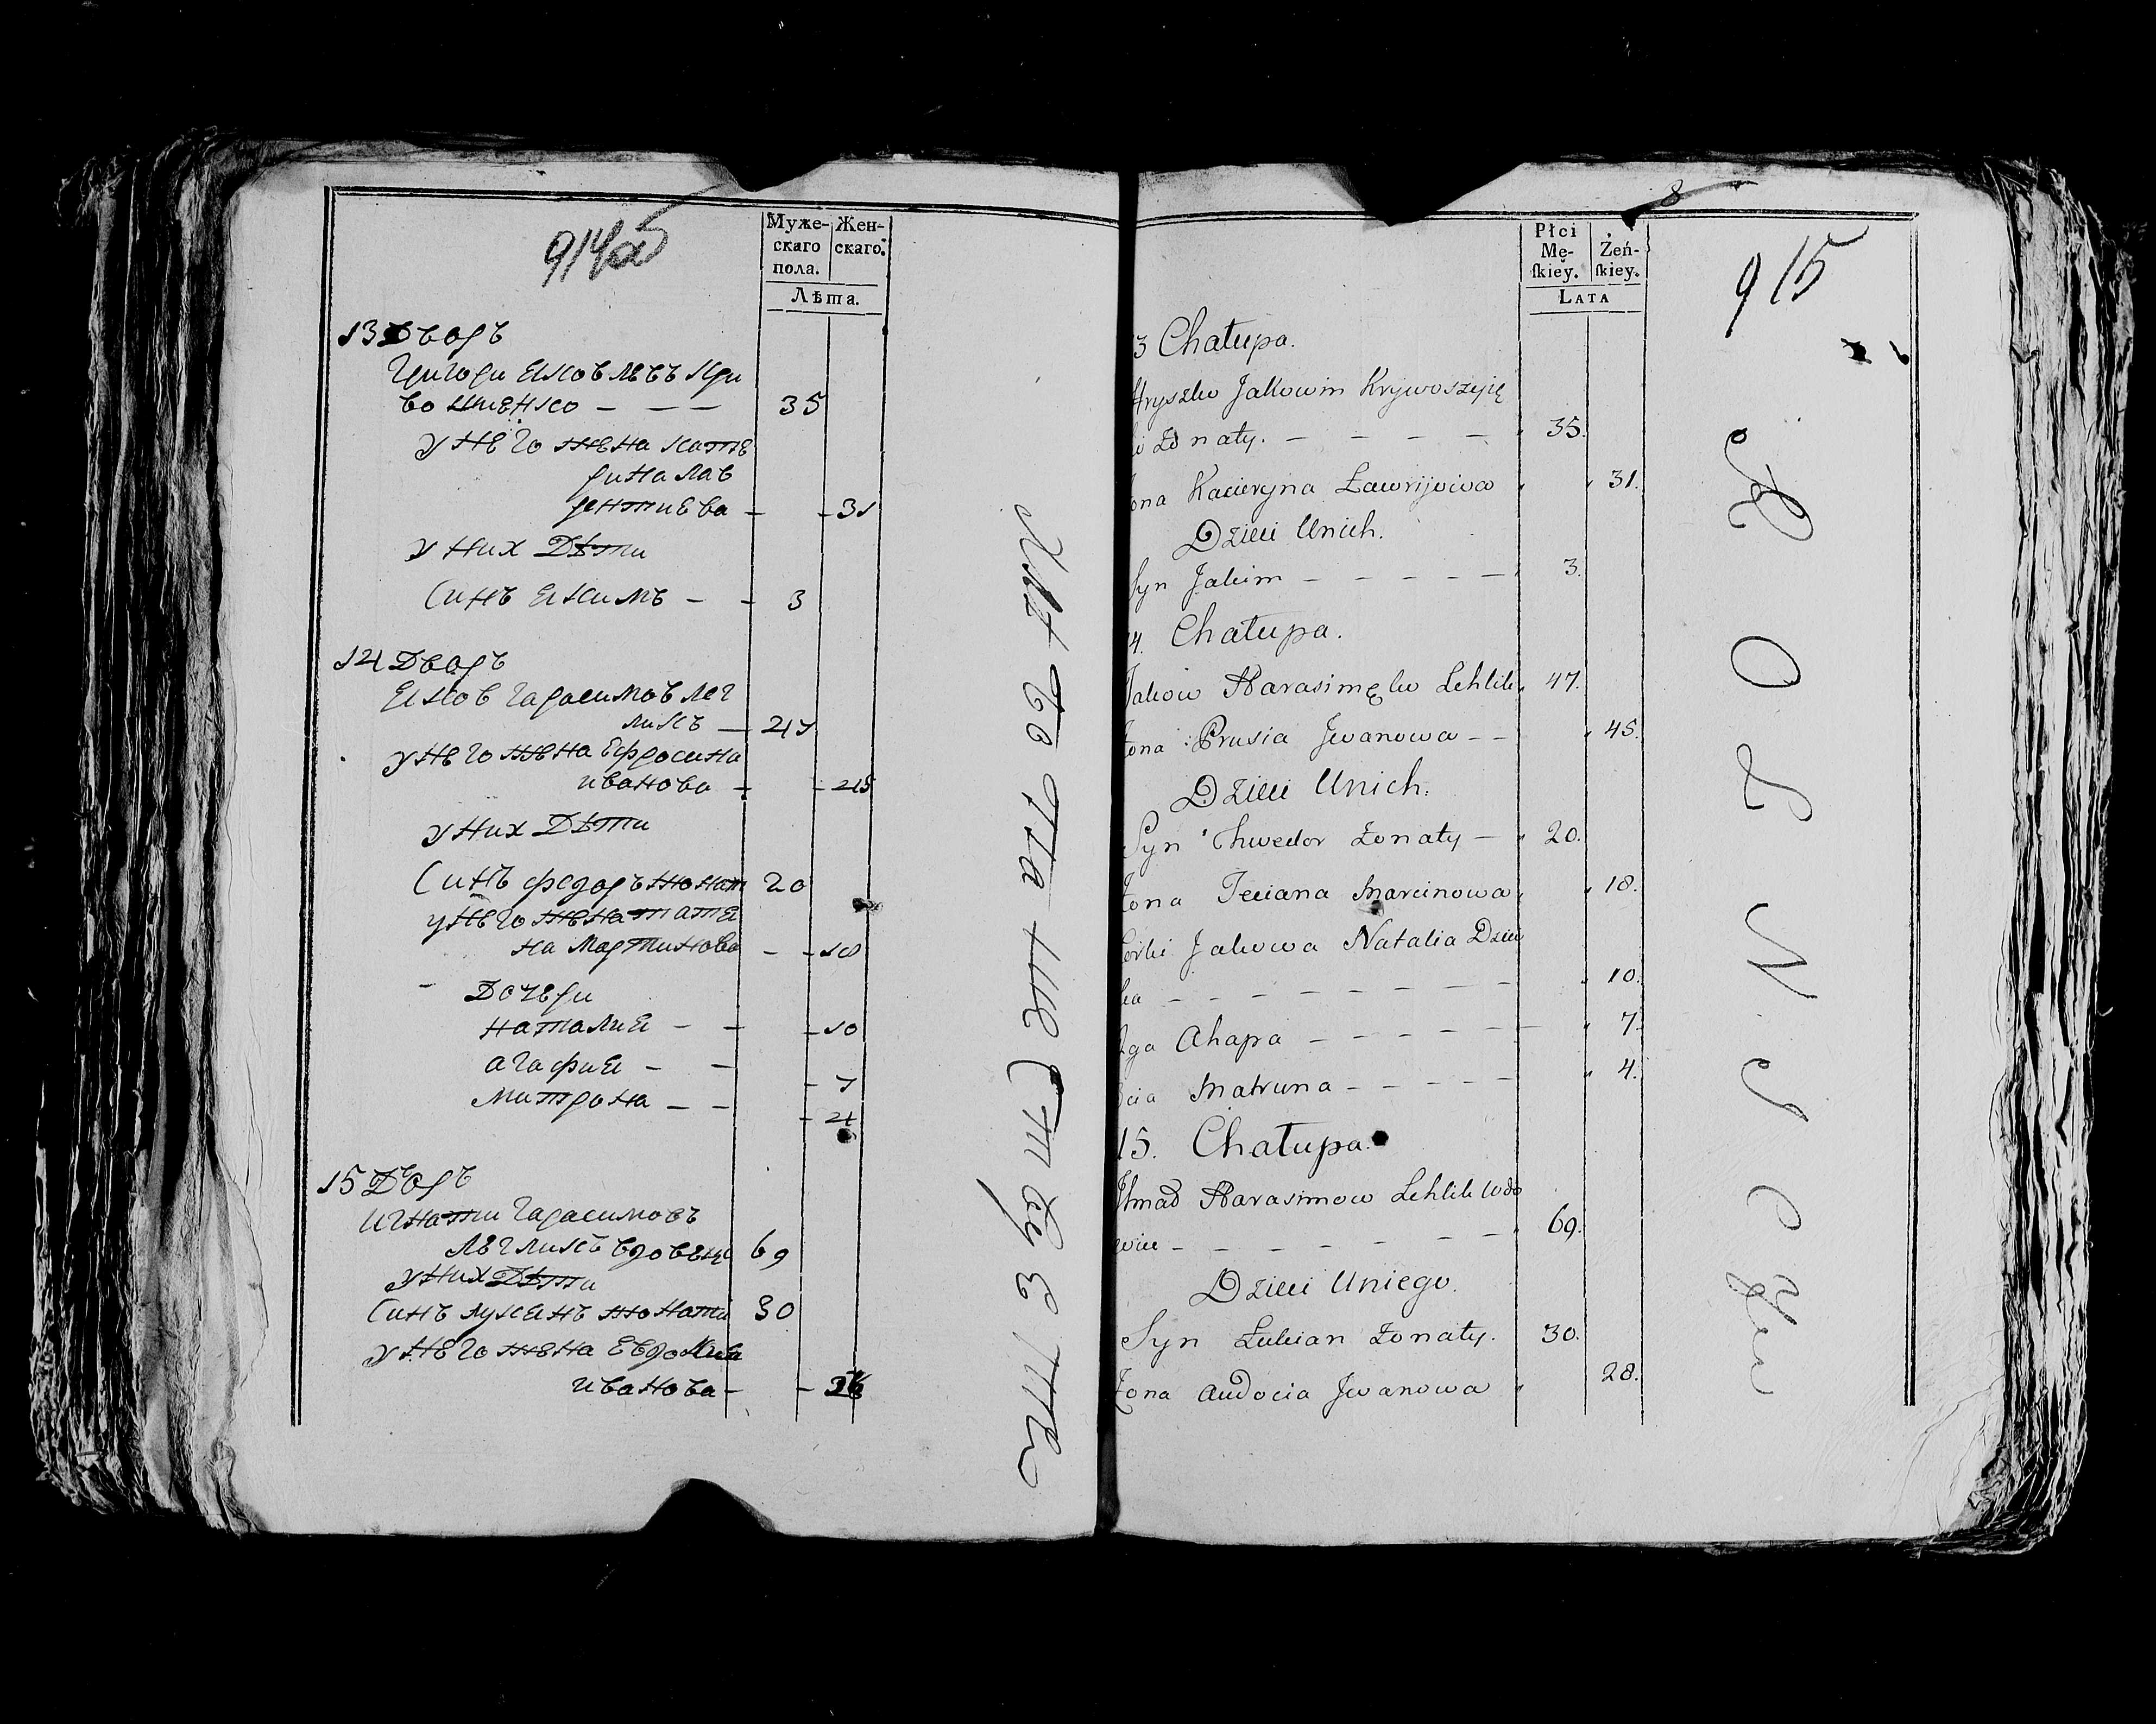 914об
Муже-
скаго
пола.
Жен-
скаго.
Лѣта.
13 Дворъ
Григори Яковлевъ Кри
вошиенко — — — 35
у него жена Кате
рина Лав
рентиева — — 31
у них Дѣти
Синъ Якимъ — — 3
14 Дворъ
Яков Гарасимов Лег
ликъ — 47
у него жена Ефросина
Иванова — — 45
у них Дѣти
Синъ Федоръ жонат 20
у него жена Татя
на Мартинова — — 18
Дочери
Наталия — — — 10
Агафия — — — 7
Мотрона — — — 4
15 Дворъ
Игнати Гарасимовъ
Легликъ вдовець 69
у них Дѣти
Синъ Лукянъ жонати 30
у него жена Евдокия
Иванова — —
8
915
Płci
Mę-
ſkiey.
Żeń-
ſkiey.
LATA
3 Chałupa.
Hryszko Jakowin Krywoszyię
ki żonaty. — — — — 35.
żona Kacieryna Ławrijowa 31.
Dzieci Unich.
Syn Jakim — — — — — 3.
4. Chałupa.
Jakow Harasimęko Lehlik 47.
żona Prusia Jwanowa — — 45.
Dzieci Unich.
Syn Chwedor żonaty — 20.
żona Teciana Marcinowa 18.
Córki Jakowa Natalia Dziew
ka — — — — — — — 10.
2ga Ahapa — — — — — 7.
3cia Matruna — — — — — 4.
15. Chałupa.
Jhnad Harasimow Lehlik wdo
wiec — — — — — — 69.
Dzieci Uniego.
Syn Łukian żonaty. 30.
żona Audocia Jwanowa 28.